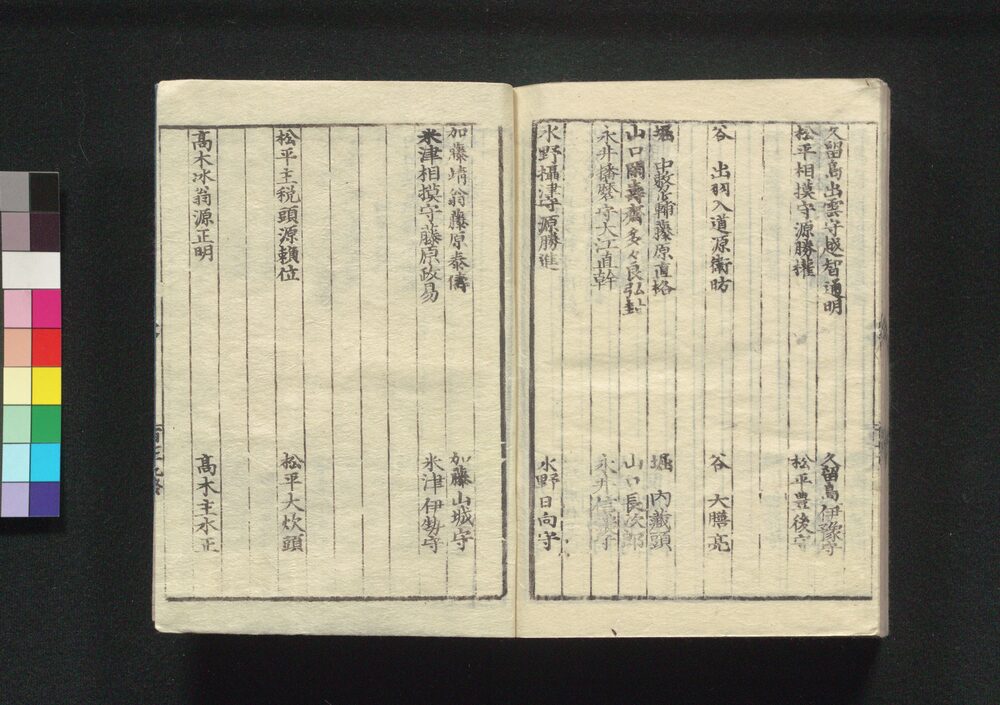 久留島出雲守越智通明
久留島伊豫守
松平相摸守源勝權
松平豊後守
谷 出羽入道源衛昉
谷 大膳亮
堀 中務少輔藤原直格
堀 内藏頭
山口爾壽齋多々良弘
山口長次郎
永井播磨守大江直幹
永井 守
水野攝津守源勝進
水野日向守
加藤靖翁藤原泰儔
加藤山城守
米津相摸守藤原政易
米津伊勢守
松平主税頭源頼位
松平大炊頭
高木冰翁源正明
高木主水正